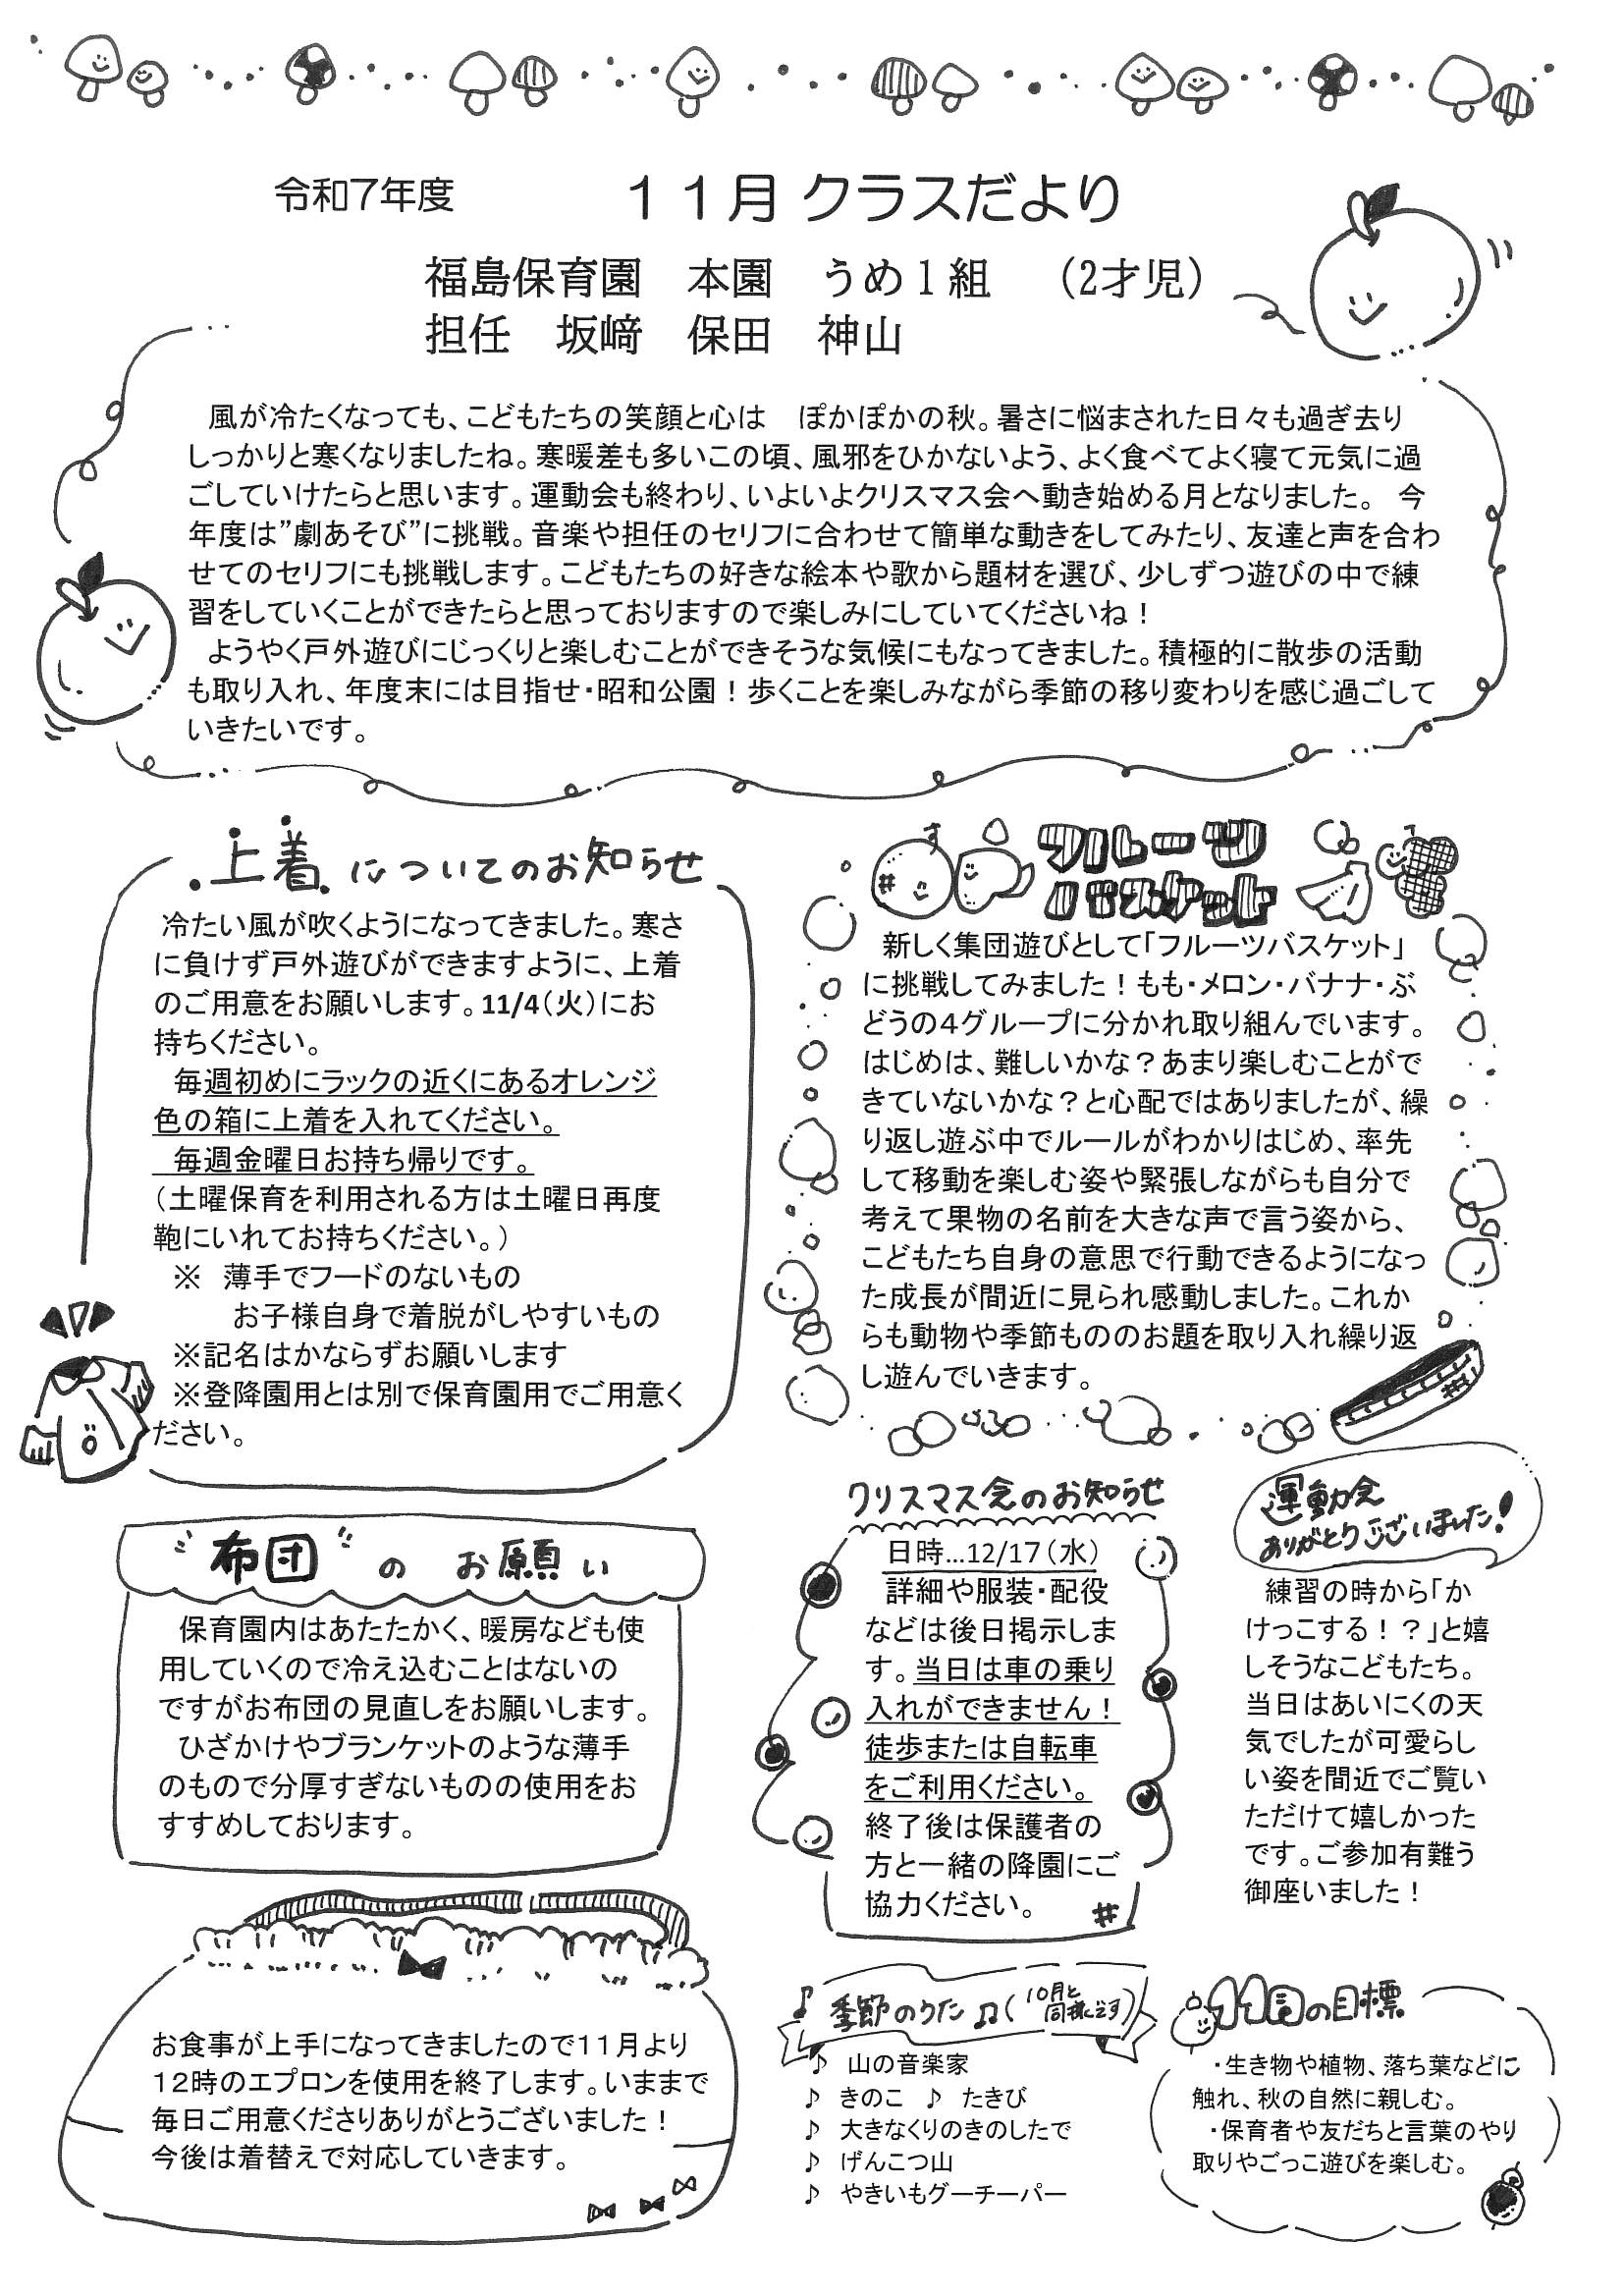 令和7年度　11月 クラスだより
福島保育園　本園　うめ1組　（2才児）
担任　坂﨑　保田　神山
風が冷たくなっても、こどもたちの笑顔と心は　ぽかぽかの秋。暑さに悩まされた日々も過ぎ去り
しっかりと寒くなりましたね。寒暖差も多いこの頃、風邪をひかないよう、よく食べてよく寝て元気に過
ごしていけたらと思います。運動会も終わり、いよいよクリスマス会へ動き始める月となりました。　今
年度は”劇あそび”に挑戦。音楽や担任のセリフに合わせて簡単な動きをしてみたり、友達と声を合わ
せてのセリフにも挑戦します。こどもたちの好きな絵本や歌から題材を選び、少しずつ遊びの中で練
習をしていくことができたらと思っておりますので楽しみにしていてくださいね！
ようやく戸外遊びにじっくりと楽しむことができそうな気候にもなってきました。積極的に散歩の活動
も取り入れ、年度末には目指せ・昭和公園！歩くことを楽しみながら季節の移り変わりを感じ過ごして
いきたいです。
上着についてのお知らせ
冷たい風が吹くようになってきました。寒さ
に負けず戸外遊びができますように、上着
のご用意をお願いします。11/4（火）にお
持ちください。
毎週初めにラックの近くにあるオレンジ
色の箱に上着を入れてください。
毎週金曜日お持ち帰りです。
（土曜保育を利用される方は土曜日再度
鞄にいれてお持ちください。）
※　薄手でフードのないもの
お子様自身で着脱がしやすいもの
※記名はかならずお願いします
※登降園用とは別で保育園用でご用意く
ださい。
フルーツ
バスケット
新しく集団遊びとして「フルーツバスケット」
に挑戦してみました！もも・メロン・バナナ・ぶ
どうの４グループに分かれ取り組んでいます。
はじめは、難しいかな？あまり楽しむことがで
きていないかな？と心配ではありましたが、繰
り返し遊ぶ中でルールがわかりはじめ、率先
して移動を楽しむ姿や緊張しながらも自分で
考えて果物の名前を大きな声で言う姿から、
こどもたち自身の意思で行動できるようになっ
た成長が間近に見られ感動しました。これか
らも動物や季節もののお題を取り入れ繰り返
し遊んでいきます。
布団のお願い
保育園内はあたたかく、暖房なども使
用していくので冷え込むことはないの
ですがお布団の見直しをお願いします。
ひざかけやブランケットのような薄手
のもので分厚すぎないものの使用をお
すすめしております。
クリスマス会のお知らせ
日時…12/17（水）
詳細や服装・配役
などは後日掲示しま
す。当日は車の乗り
入れができません！
徒歩または自転車
をご利用ください。
終了後は保護者の
方と一緒の降園にご
協力ください。
運動会
ありがとうございました！
練習の時から「か
けっこする！？」と嬉
しそうなこどもたち。
当日はあいにくの天
気でしたが可愛らし
い姿を間近でご覧い
ただけて嬉しかった
です。ご参加有難う
御座いました！
お食事が上手になってきましたので１１月より
１２時のエプロンを使用を終了します。いままで
毎日ご用意くださりありがとうございました！
今後は着替えで対応していきます。
♪季節のうた♫（10月と同様です）
♪　山の音楽家
♪　きのこ　♪　たきび
♪　大きなくりのきのしたで
♪　げんこつ山
♪　やきいもグーチーパー
11月の目標
・生き物や植物、落ち葉などに
触れ、秋の自然に親しむ。
・保育者や友だちと言葉のやり
取りやごっこ遊びを楽しむ。